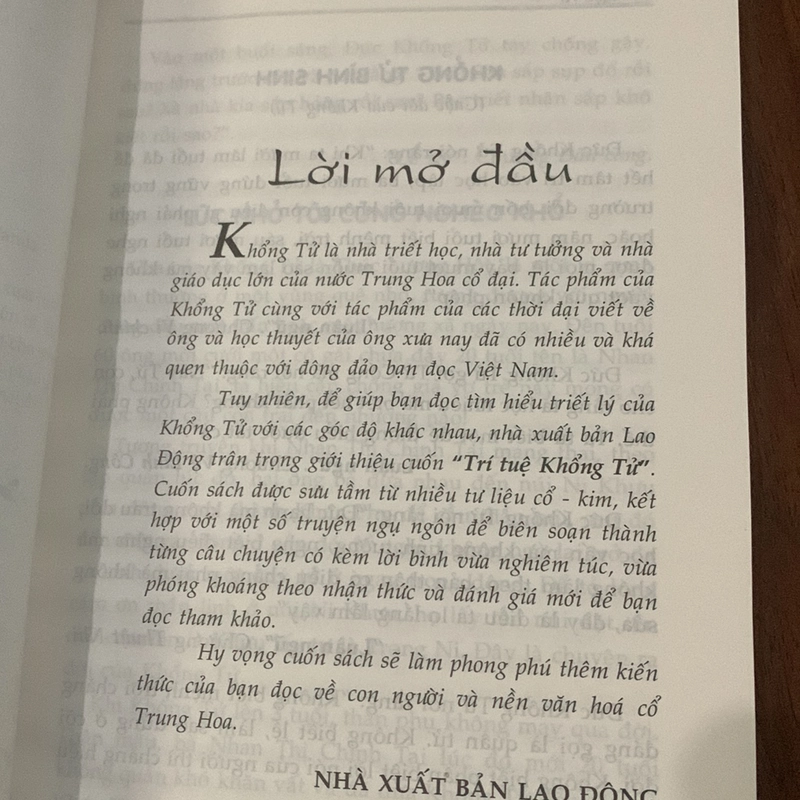 Lời mở đầu
Khổng Tử là nhà triết học, nhà tư tưởng và nhà
giáo dục lớn của nước Trung Hoa cổ đại. Tác phẩm của
Khổng Tử cùng với tác phẩm của các thời đại viết về
ông và học thuyết của ông xưa nay đã có nhiều và khá
quen thuộc với đông đảo bạn đọc Việt Nam.
Tuy nhiên, để giúp bạn đọc tìm hiểu triết lý của
Khổng Tử với các góc độ khác nhau, nhà xuất bản Lao
Động trân trọng giới thiệu cuốn “Trí tuệ Khổng Tử”.
Cuốn sách được sưu tầm từ nhiều tư liệu cổ - kim, kết
hợp với một số truyện ngụ ngôn để biên soạn thành
từng câu chuyện có kèm lời bình vừa nghiêm túc, vừa
phóng khoáng theo nhận thức và đánh giá mới để bạn
đọc tham khảo.
Hy vọng cuốn sách sẽ làm phong phú thêm kiến
thức của bạn đọc về con người và nền văn hoá cổ
Trung Hoa.
NHÀ XUẤT BẢN LAO ĐỘNG